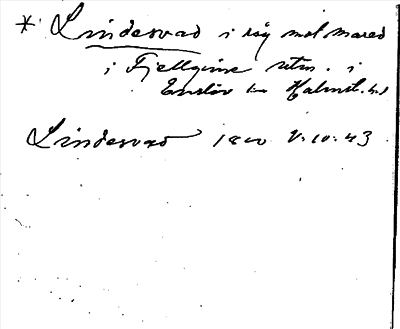 * Lindesvad i råg mot mared
i Fjellgine utm. i
Enslöv sn Halmst. hd
Lindesvad 1800 V. 10. 43